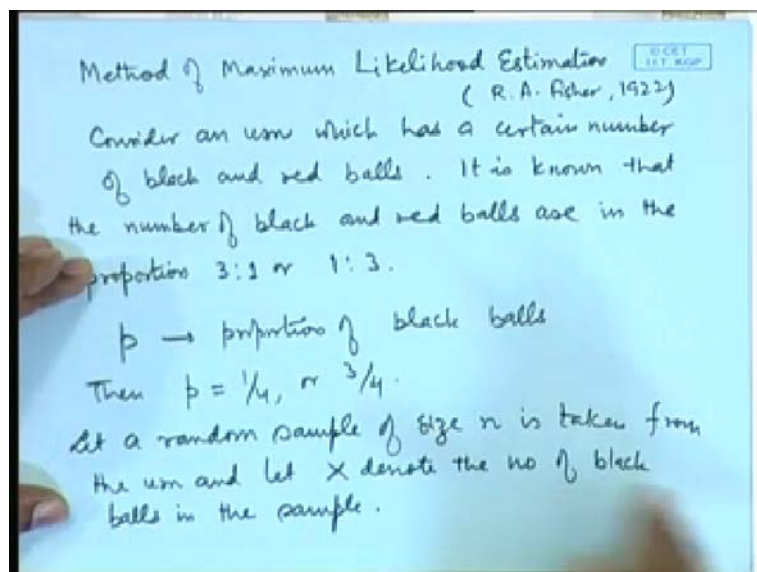 Method of Maximum Likelihood Estimation
© CET
I.I.T. KGP
( R. A. Fisher, 1922)
Consider an urn which has a certain number
of black and red balls. It is known that
the number of black and red balls are in the
proportion 3:1 or 1:3.
p → proportion of black balls
Then p = 1/4, or 3/4.
Let a random sample of size n is taken from
the urn and let X denote the no of black
balls in the sample.